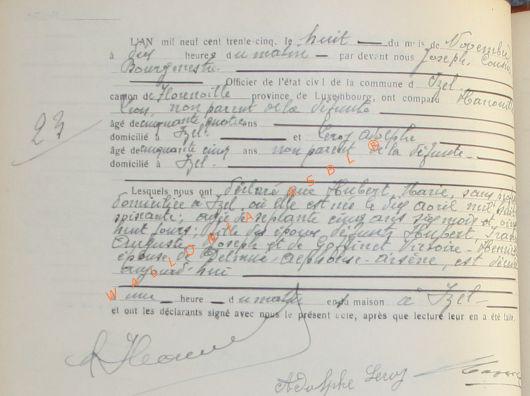 L'AN mil neuf cent trente-cinq, le huit du mois de Novembre
à dix heures du matin par devant nous Joseph
Bourgmestre
Officier de l'état civil de la commune d'Izel
canton de Florenville province de Luxembourg, ont comparu
non parent de la défunte
âgé de cinquante quatre ans
domicilié à Izel et Leroy Adolphe
âgé de cinquante cinq ans non parent de la défunte
domicilié à Izel
27
Lesquels nous ont déclaré que Hubert, Marie, sans
domiciliée à Izel, où elle est née le dix avril mil
soixante, âgée de septante cinq ans six mois et
huit jours, fille des époux défunts Hubert,
Auguste Joseph et de Victoire
épouse de Alphonse Arsène, est
aujourd'hui
une heure du matin en sa maison à Izel
et ont les déclarants signé avec nous le présent acte, après que lecture leur en a été faite.
Adolphe Leroy
WALLONIA ASBL ©